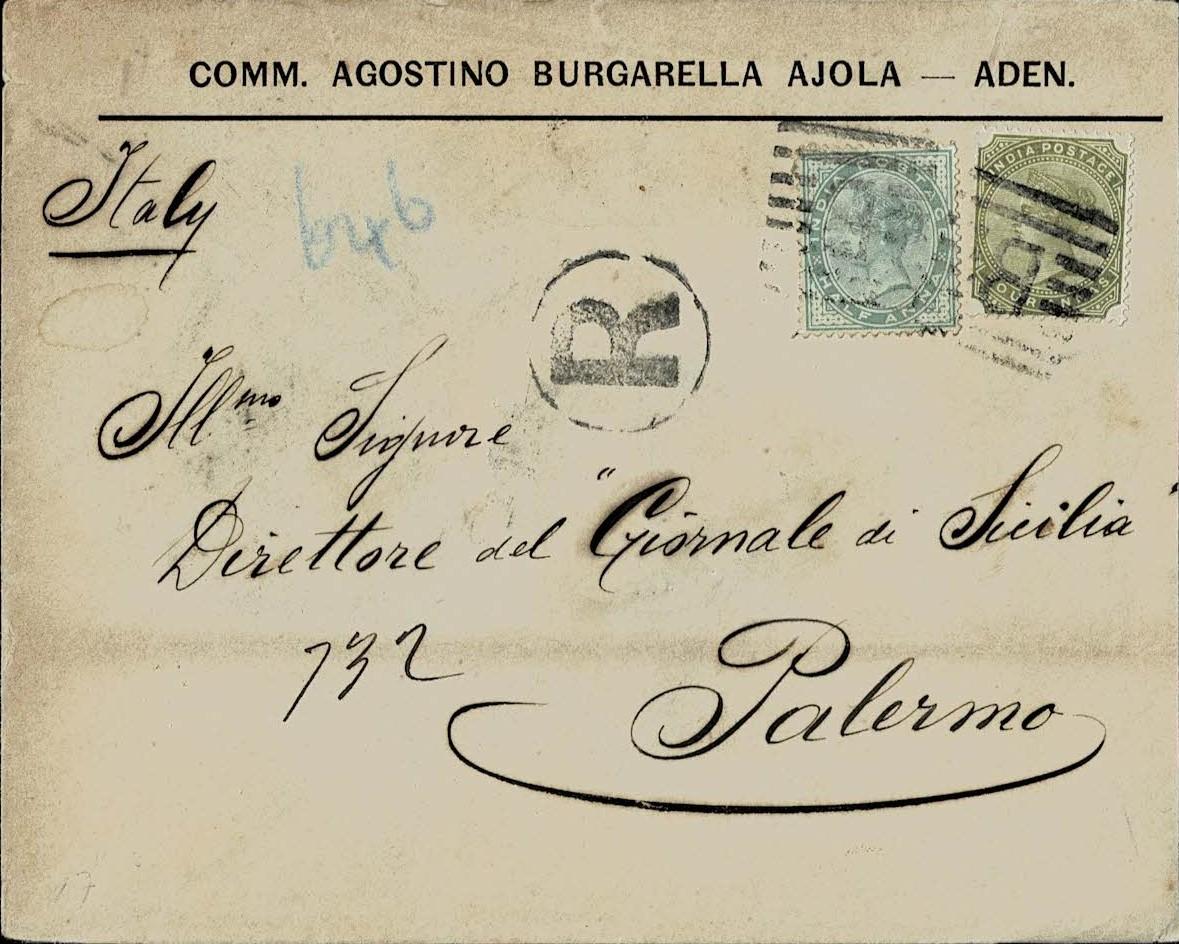 COMM. AGOSTINO BURGARELLA AJOLA — ADEN.
Italy
R
HALF ANNA
INDIA POSTAGE
Ill.mo Signore
Direttore del "Giornale di Sicilia"
732
Palermo